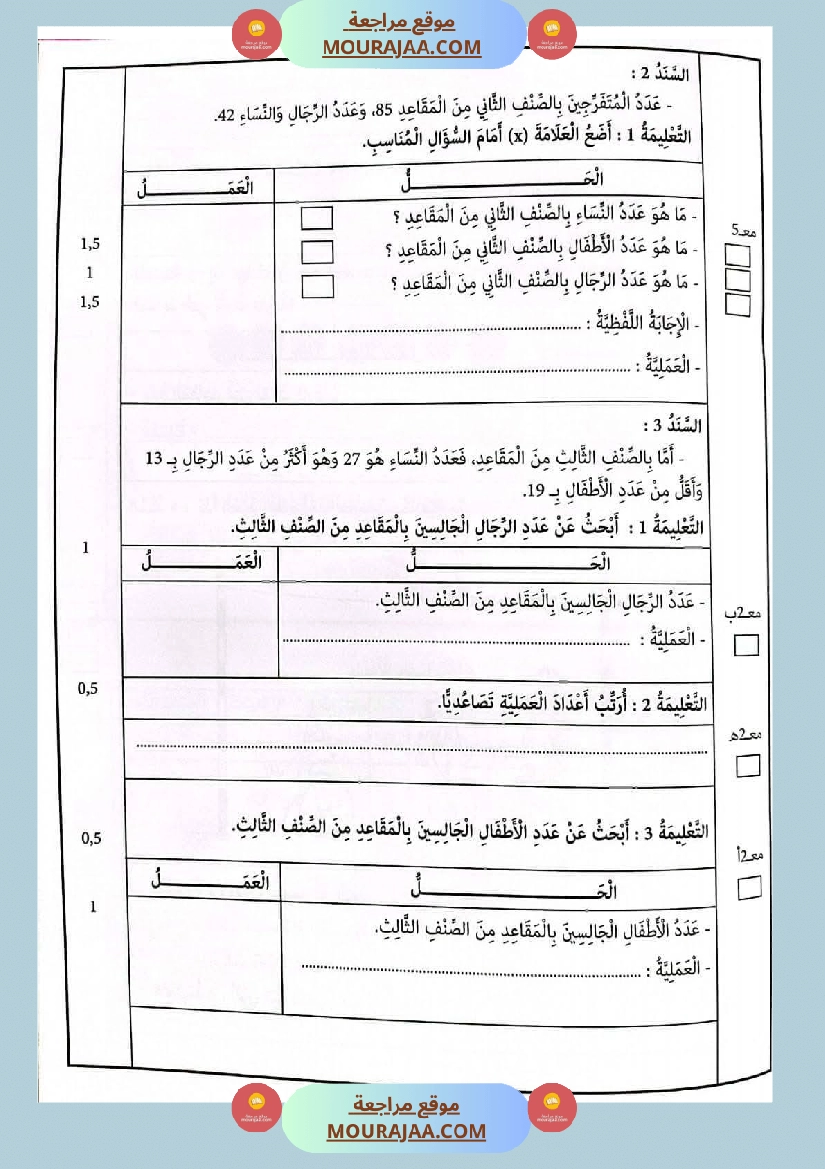 موقع مراجعة
MOURAJAA.COM
السَّنَدُ 2 :
- عَدَدُ الْمُتَفَرِّجِينَ بِالصِّنْفِ الثَّانِي مِنَ الْمَقَاعِدِ 85، وَعَدَدُ الرِّجَالِ وَالنِّسَاءِ 42.
التَّعْلِيمَةُ 1 : أَضَعُ الْعَلَامَةَ (x) أَمَامَ السُّؤَالِ الْمُنَاسِبِ.
الْحَــــــلُّ الْعَمَــــــلُ
- مَا هُوَ عَدَدُ النِّسَاءِ بِالصِّنْفِ الثَّانِي مِنَ الْمَقَاعِدِ ؟
معـ5
1,5
- مَا هُوَ عَدَدُ الْأَطْفَالِ بِالصِّنْفِ الثَّانِي مِنَ الْمَقَاعِدِ ؟
1
- مَا هُوَ عَدَدُ الرِّجَالِ بِالصِّنْفِ الثَّانِي مِنَ الْمَقَاعِدِ ؟
1,5
- الْإِجَابَةُ اللَّفْظِيَّةُ : ......................................................
- الْعَمَلِيَّةُ : ......................................................
السَّنَدُ 3 :
- أَمَّا بِالصِّنْفِ الثَّالِثِ مِنَ الْمَقَاعِدِ، فَعَدَدُ النِّسَاءِ هُوَ 27 وَهْوَ أَكْثَرُ مِنْ عَدَدِ الرِّجَالِ بِـ 13
وَأَقَلُّ مِنْ عَدَدِ الْأَطْفَالِ بِـ 19.
التَّعْلِيمَةُ 1 : أَبْحَثُ عَنْ عَدَدِ الرِّجَالِ الْجَالِسِينَ بِالْمَقَاعِدِ مِنَ الصِّنْفِ الثَّالِثِ.
1
الْحَــــــلُّ الْعَمَــــــلُ
- عَدَدُ الرِّجَالِ الْجَالِسِينَ بِالْمَقَاعِدِ مِنَ الصِّنْفِ الثَّالِثِ.
معـ2ب
- الْعَمَلِيَّةُ : ......................................................
0,5
التَّعْلِيمَةُ 2 : أُرَتِّبُ أَعْدَادَ الْعَمَلِيَّةِ تَصَاعُدِيًّا.
معـ2هـ
......................................................
التَّعْلِيمَةُ 3 : أَبْحَثُ عَنْ عَدَدِ الْأَطْفَالِ الْجَالِسِينَ بِالْمَقَاعِدِ مِنَ الصِّنْفِ الثَّالِثِ.
0,5
معـ2أ
الْحَــــــلُّ الْعَمَــــــلُ
1
- عَدَدُ الْأَطْفَالِ الْجَالِسِينَ بِالْمَقَاعِدِ مِنَ الصِّنْفِ الثَّالِثِ.
- الْعَمَلِيَّةُ : ......................................................
موقع مراجعة
MOURAJAA.COM